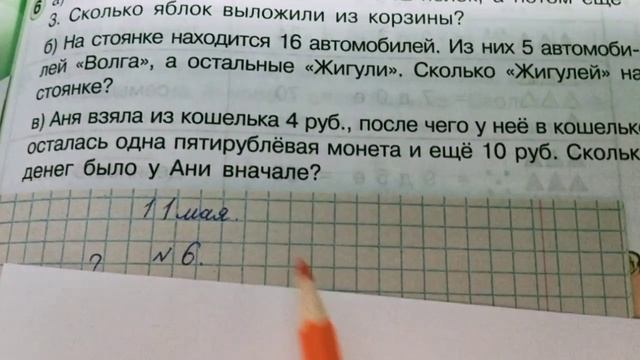 6
3. Сколько яблок выложили из корзины?
б) На стоянке находится 16 автомобилей. Из них 5 автомоби-
лей «Волга», а остальные «Жигули». Сколько «Жигулей» на
стоянке?
в) Аня взяла из кошелька 4 руб., после чего у неё в кошельк
осталась одна пятирублёвая монета и ещё 10 руб. Скольк
денег было у Ани вначале?
11 мая.
№ 6.
?